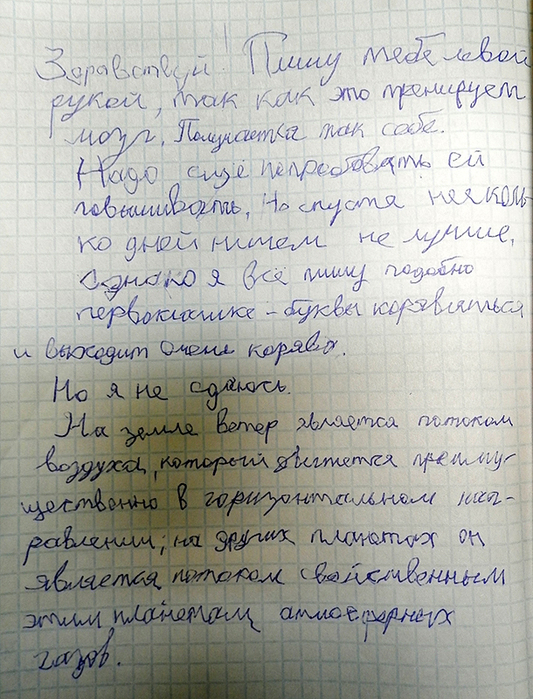 Здравствуй! Пишу тебе левой
рукой, так как это тренирует
мозг. Получается так себе.
Надо ещё попробовать ей
повышивать. Но спустя несколь-
ко дней пишем не лучше.
Однако я всё пишу подобно
первоклашке - буквы корявяться
и выходит очень коряво.
Но я не сдаюсь.
На земле ветер является потоком
воздуха, который двигается преиму-
щественно в горизонтальном нап-
равлении; на других планетах он
является потоком свойственным
этим планетам атмосферных
газов.